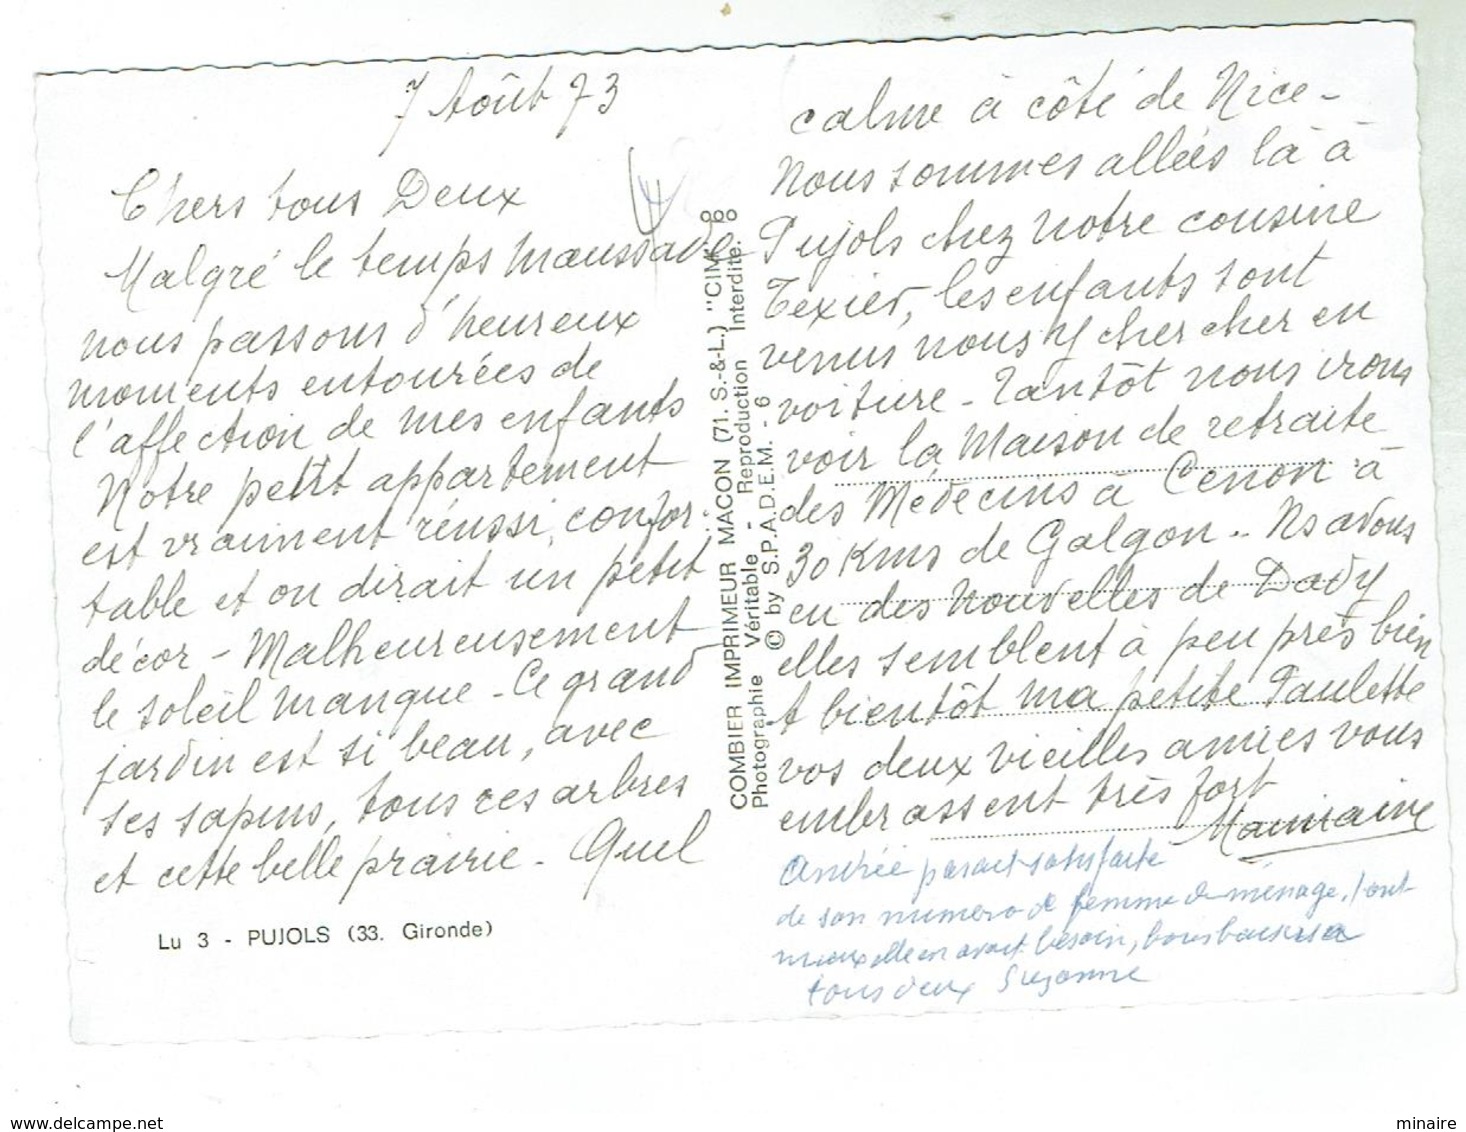 7 Août 73
Chers tous Deux
Malgré le temps maussade
nous passons d'heureux
moments entourées de
l'affection de mes enfants
Notre petit appartement
est vraiment réussi, confor-
table et on dirait un petit
décor - Malheureusement
le soleil manque - Ce grand
jardin est si beau, avec
ses sapins, tous ces arbres
et cette belle prairie - Quel
Lu 3 - PUJOLS (33. Gironde)
COMBIER IMPRIMEUR MACON (71. S.-&-L.) "CIM"
Photographie Véritable - Reproduction Interdite.
© by S.P.A.D.E.M. - 6
calme à côté de Nice -
Nous sommes allées là à
Pujols chez notre cousine
Texier, les enfants sont
venus nous y chercher en
voiture - Tantôt nous irons
voir la Maison de retraite
des Médecins à Cenon à
30 Kms de Galgon - Ns avons
eu des nouvelles de Dady
elles semblent à peu près bien
A bientôt ma petite Paulette
vos deux vieilles amies vous
embrassent très fort
Marraine
Andrée parait satisfaite
de son numéro de femme de ménage, tant
mieux elle en avait besoin, bons baisers à
tous deux Suzanne
www.delcampe.net
minaire